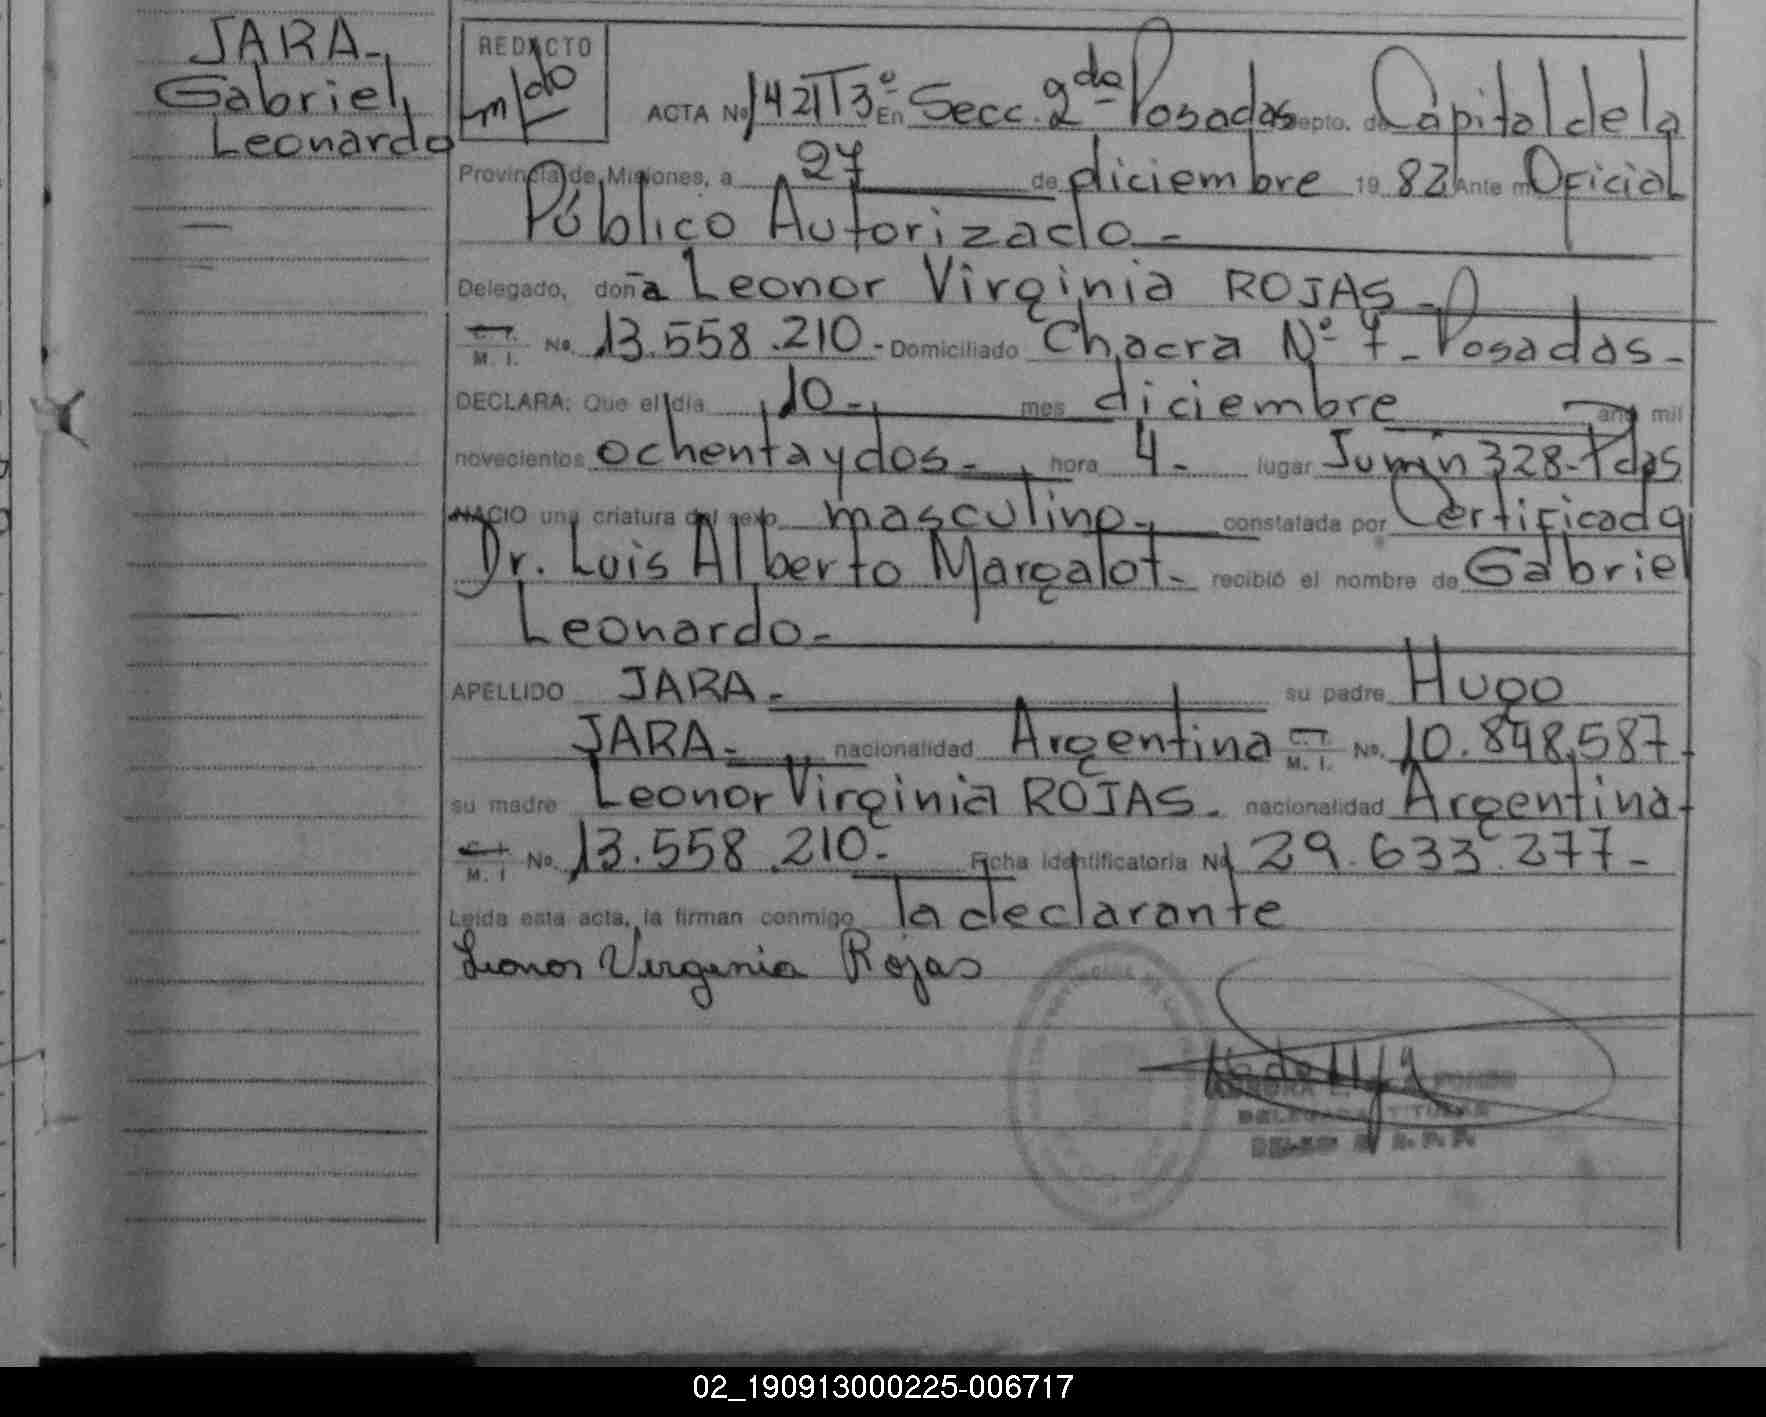 JARA-
Gabriel,
Leonardo
REDACTO
ACTA No 1421T3º En Secc. 2da Posadas Depto. de Capital de la
Provincia de Misiones, a 27 de diciembre 19 82 Ante mí Oficial
Público Autorizado-
Delegado, doña Leonor Virginia ROJAS-
C. I.
M. I. No. 13.558.210- Domiciliado Chacra Nº 7- Posadas-
DECLARA: Que el día 10- mes diciembre año mil
novecientos ochentaydos- hora 4- lugar Junin 328-Pdas
NACIO una criatura del sexo masculino- constatada por Certificado
Dr. Luis Alberto Margalot- recibió el nombre de Gabriel
Leonardo-
APELLIDO JARA- su padre Hugo
JARA- nacionalidad Argentina C. I. M. I. No. 10.848.587-
su madre Leonor Virginia ROJAS- nacionalidad Argentina-
C. I.
M. I No. 13.558.210- Ficha identificatoria No 29.633.277-
Leída esta acta, la firman conmigo la declarante
Leonor Virginia Rojas
DELEGADA TITULAR
02_190913000225-006717